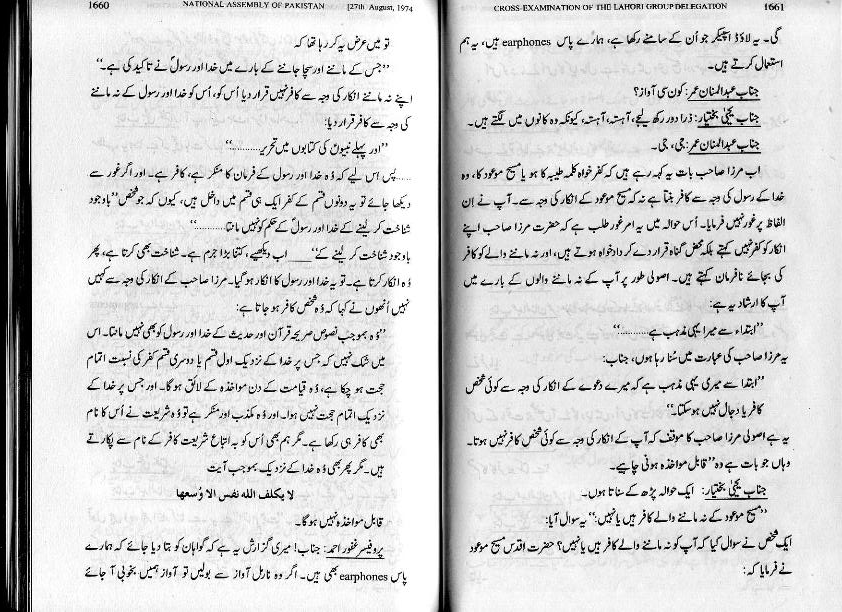 1660 NATIONAL ASSEMBLY OF PAKISTAN [27th August, 1974
تو میں عرض یہ کر رہا تھا کہ
”جس کے ماننے اور سچا جاننے کے بارے میں خدا اور رسولؐ نے تاکید کی ہے۔“
اپنے نہ ماننے انکار کی وجہ سے کافر نہیں قرار دیا اُس کو، اُس کو خدا اور رسول کے نہ ماننے
کی وجہ سے کافر قرار دیا:
”اور پہلے نبیوں کی کتابوں میں تحریر............“
......پس اس لیے کہ وُہ خدا اور رسول کے فرمان کا منکر ہے، کافر ہے۔ اور اگر غور سے
دیکھا جائے تو یہ دونوں قسم کے کفر ایک ہی قسم میں داخل ہیں، کیوں کہ جو شخص ”باوجود
شناخت کر لینے کے خدا اور رسولؐ کے حکم کو نہیں مانتا............“
باوجود شناخت کر لینے کے“____ اب دیکھیے، کتنا بڑا جرم ہے۔ شناخت بھی کرتا ہے، پھر
وُہ انکار کرتا ہے۔ تو یہ خدا اور رسول کا انکار ہو گیا۔ مرزا صاحب کے انکار کی وجہ سے کہیں
نہیں اُنھوں نے کہا کہ وُہ شخص کافر ہو جاتا ہے:
”وُہ بموجب نصوص صریحہ قرآن اور حدیث کے خدا اور رسول کو بھی نہیں مانتا۔ اس
میں شک نہیں کہ جس پر خدا کے نزدیک اول قسم یا دوسری قسم کفر کی نسبت اتمام
حجت ہو چکا ہے، وُہ قیامت کے دن مواخذہ کے لائق ہو گا۔ اور جس پر خدا کے
نزدیک اتمام حجت نہیں ہوا۔ اور وُہ مکذب اور منکر ہے تو وُہ شریعت نے اُس کا نام
بھی کافر ہی رکھا ہے۔ مگر ہم بھی اُس کو بہ اتباع شریعت کافر کے نام سے پکارتے
ہیں۔ مگر پھر بھی وُہ خدا کے نزدیک بموجب آیت
لا یکلف الله نفس الا وُسعها
قابل مواخذہ نہیں ہو گا۔
پروفیسر غفور احمد: جناب! میری گزارش یہ ہے کہ گواہان کو بتا دیا جائے کہ ہمارے
پاس earphones بھی ہیں۔ اگر وہ نارمل آواز سے بولیں تو آواز ہمیں بخوبی آ جائے
CROSS-EXAMINATION OF THE LAHORI GROUP DELEGATION 1661
گی۔ یہ لاؤڈ اسپیکر جو اُن کے سامنے رکھا ہے، ہمارے پاس earphones ہیں، یہ ہم
استعمال کرتے ہیں۔
جناب عبدالمنان عمر: کون سی آواز؟
جناب یحییٰ بختیار: ذرا دور رکھ لیجے، آہستہ، آہستہ، کیونکہ وہ کانوں میں لگتے ہیں۔
جناب عبدالمنان عمر: جی، جی۔
اب مرزا صاحب بات یہ کہہ رہے ہیں کہ کفر خواہ کلمہ طیبہ کا ہو یا مسیح موعود کا، وہ
خدا کے رسول کی وجہ سے کافر بنتا ہے نہ کہ مسیح موعود کے انکار کی وجہ سے۔ آپ نے اِن
الفاظ پر غور نہیں فرمایا۔ اُس حوالہ میں یہ امر غور طلب ہے کہ حضرت مرزا صاحب اپنے
انکار کو کفر نہیں کہتے بلکہ محض گناہ قرار دے کر دادخواہ ہوتے ہیں، اور نہ ماننے والے کو کافر
کی بجائے نافرمان کہتے ہیں۔ اصولی طور پر آپ کے نہ ماننے والوں کے بارے میں
آپ کا ارشاد یہ ہے:
”ابتداء سے میرا یہی مذہب ہے............“
یہ مرزا صاحب کی عبارت میں سُنا رہا ہوں، جناب:
”ابتدا سے میری یہی مذہب ہے کہ میرے دعوے کے انکار کی وجہ سے کوئی شخص
کافر یا دجال نہیں ہو سکتا۔“
یہ ہے اصولی مرزا صاحب کا موقف کہ آپ کے انکار کی وجہ سے کوئی شخص کافر نہیں ہوتا۔
وہاں جو بات ہے وہ ”قابل مواخذہ ہونی چاہیے۔
جناب یحییٰ بختیار: ایک حوالہ پڑھ کے سناتا ہوں۔
”مسیح موعود کے نہ ماننے والے کافر ہیں یا نہیں:“ یہ سوال آیا:
ایک شخص نے سوال کیا کہ آپ کو نہ ماننے والے کافر ہیں یا نہیں؟ حضرت اقدس مسیح موعود
نے فرمایا کہ: